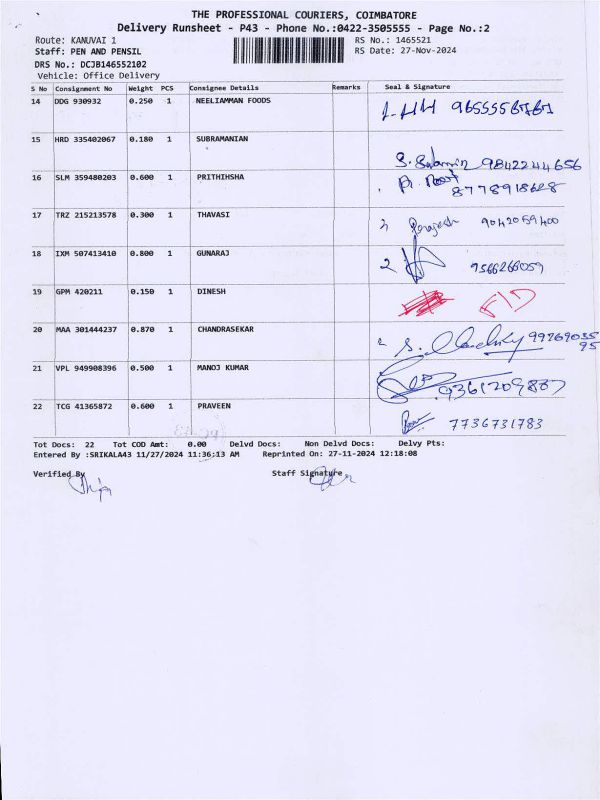 THE PROFESSIONAL COURIERS, COIMBATORE
Delivery Runsheet - P43 - Phone No.:0422-3505555 - Page No.:2
Route: KANUVAI 1 RS No.: 1465521
Staff: PEN AND PENSIL RS Date: 27-Nov-2024
DRS No.: DCJB146552102
Vehicle: Office Delivery
S No Consignment No Weight PCS Consignee Details Remarks Seal & Signature
14 DDG 930932 0.250 1 NEELIAMMAN FOODS
15 HRD 335402067 0.180 1 SUBRAMANIAN 9842244656
16 SLM 359480203 0.600 1 PRITHIHSHA
17 TRZ 215213578 0.300 1 THAVASI 9042059400
18 IXM 507413410 0.800 1 GUNARAJ 9566266059
19 GPM 420211 0.150 1 DINESH
20 MAA 301444237 0.870 1 CHANDRASEKAR
21 VPL 949908396 0.500 1 MANOJ KUMAR
22 TCG 41365872 0.600 1 PRAVEEN 7736731783
Tot Docs: 22 Tot COD Amt: 0.00 Delvd Docs: Non Delvd Docs: Delvy Pts:
Entered By :SRIKALA43 11/27/2024 11:36:13 AM Reprinted On: 27-11-2024 12:18:08
Verified By Staff Signature